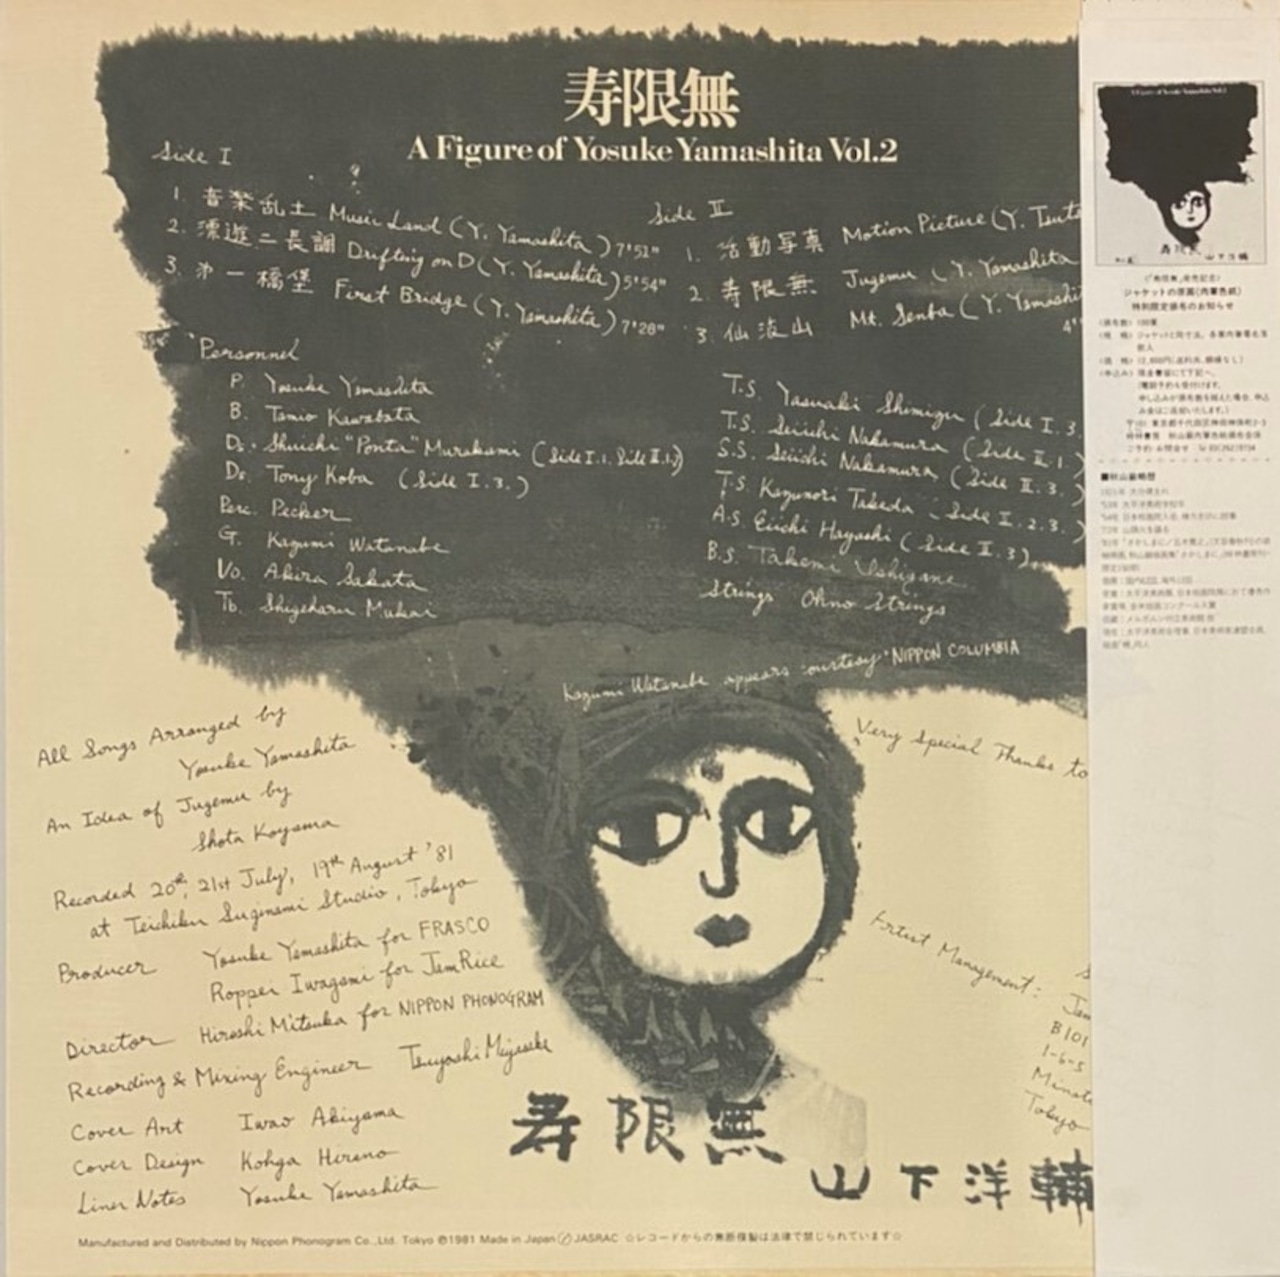 寿限無
A Figure of Yosuke Yamashita Vol.2
Side I
1. 音楽乱土 Music Land (Y. Yamashita) 7'52"
2. 漂遊ニ長調 Drifting on D (Y. Yamashita) 5'54"
3. 第一橋堡 First Bridge (Y. Yamashita) 7'28"
Side II
1. 活動写真 Motion Picture (Y. Tsuts
2. 寿限無 Jugemu (Y. Yamashita
3. 仙波山 Mt. Senba (Y. Yamashi
4'
Personnel
P. Yosuke Yamashita
B. Tamio Kawabata
Ds. Shuichi "Ponta" Murakami (Side I.1. Side II.1.2)
Ds. Tony Koba (Side I.3.)
Perc. Pecker
G. Kazumi Watanabe
Vo. Akira Sakata
Tb. Shigeharu Mukai
T.S. Yasuaki Shimizu (Side I.3.
T.S. Seiichi Nakamura (Side II.1.)
S.S. Seiichi Nakamura (Side II.3.)
T.S. Kazunori Takeda (Side I.2.3.)
A.S. Eiichi Hayashi (Side II.3)
B.S. Takemi Ushigane
Strings Ohno Strings
Kazumi Watanabe appears courtesy NIPPON COLUMBIA
All Songs Arranged by
Yosuke Yamashita
An Idea of Jugemu by
Shota Koyama
Recorded 20th, 21st July, 19th August '81
at Teichiku Suginami Studio, Tokyo
Producer Yosuke Yamashita for FRASCO
Roppei Iwagami for JamRice
Director Hiroshi Mitsuka for NIPPON PHONOGRAM
Recording & Mixing Engineer Tsuyoshi Miyasake
Cover Art Iwao Akiyama
Cover Design Kohga Hirano
Liner Notes Yosuke Yamashita
Very Special Thanks to
Artist Management:
S
Jam
B101
1-6-5
Minato
Tokyo
寿限無
山下洋輔
Manufactured and Distributed by Nippon Phonogram Co.,Ltd. Tokyo ℗1981 Made in Japan JASRAC ☆レコードからの無断複製は法律で禁じられています☆
A Figure of Yosuke Yamashita Vol.2
寿限無
山下洋輔
(「寿限無」発売記念)
ジャケットの原画(肉筆色紙)
特別限定頒布のお知らせ
■秋山巌略歴